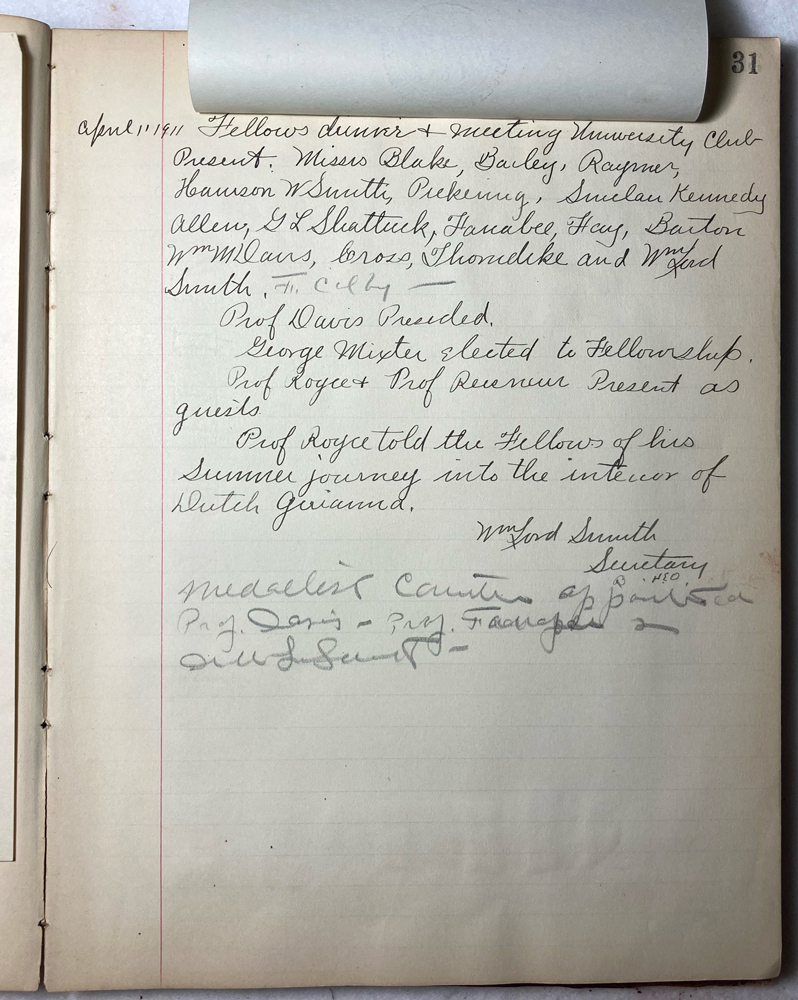 31
April 11 1911 Fellows dinner & meeting University Club
Present. Messrs Blake, Bailey, Raymer,
Harrison W Smith, Pickering, Sinclair Kennedy
Allen, G L Shattuck, Farrabee, Fay, Barton
Wm M Davis, Cross, Thorndike and Wm Lord
Smith.
Prof Davis Presided.
George Mixter elected to Fellowship.
Prof Royce & Prof Present as
guests
Prof Royce told the Fellows of his
Summer journey into the interior of
Dutch Guianna.
Wm Lord Smith
Secretary
Medallist appointed
Prof. Davis - Prof. &